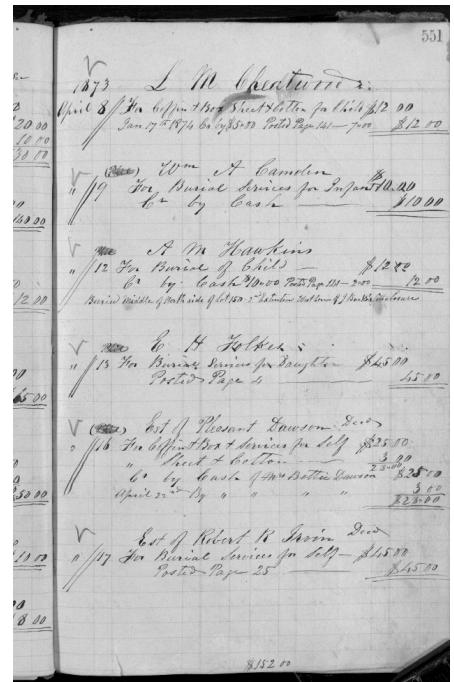 551
1873 L M Cheatwood
April 8 For Coffin & Box Sheet & Cotton for Child $12 00
Jan 17th 1874 Cr by $5.00 Posted Page 141 — 7.00 $12 00
Wm A Camden
" 19 For Burial Services for Infant $10.00
Cr by Cash $10.00
A M Hawkins
" 12 For Burial of Child — $12.00
Cr by Cash $10.00 Postd Page 141 — 2.00 12 00
Buried Middle of North side of lot 150
E H Folkes
" 13 For Burial Services for Daughter $45.00
Posted Page 4 45 00
Est of Pleasant Dawson Decd
" 16 For Coffin & Box & Services for Self $25.00
" Sheet & Cotton 3 00
28.00
Cr by Cash of Mrs Bettie Dawson $25 00
April 22nd By " " " " 3 00
$28.00
Est of Robert R Irvin Decd
" 17 For Burial Services for Self — $45.00
Posted Page 25 $45 00
$152 00
20 00
10 00
30 00
140 00
12 00
65 00
50 00
10 00
8 00